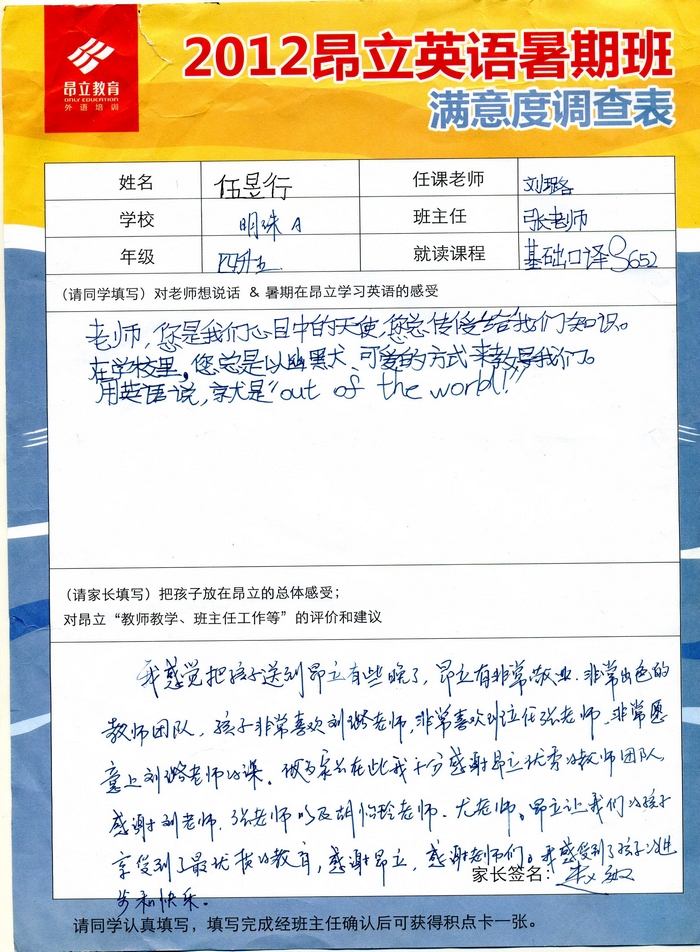 昂立教育
ONLY EDUCATION
外语培训
2012昂立英语暑期班
满意度调查表
姓名 伍昱行 任课老师 刘璐
学校 明珠A 班主任 张老师
年级 四升五 就读课程 基础口译S652
(请同学填写) 对老师想说话 & 暑期在昂立学习英语的感受
老师,您是我们心目中的天使,您总传授给我们知识。
在学校里,您总是以幽默、可爱的方式来教导我们。
用英语说,就是“out of the world!”
(请家长填写) 把孩子放在昂立的总体感受;
对昂立“教师教学、班主任工作等”的评价和建议
我感觉把孩子送到昂立有些晚了,昂立有非常敬业、非常出色的
教师团队,孩子非常喜欢刘璐老师,非常喜欢班主任张老师,非常愿
意上刘璐老师的课。做为家长在此我十分感谢昂立优秀的教师团队,
感谢刘老师、张老师以及胡怡玲老师、尤老师。昂立让我们的孩子
享受到了最优秀的教育,感谢昂立,感谢老师们。我感受到了孩子的进
步和快乐。
家长签名:
请同学认真填写,填写完成经班主任确认后可获得积点卡一张。